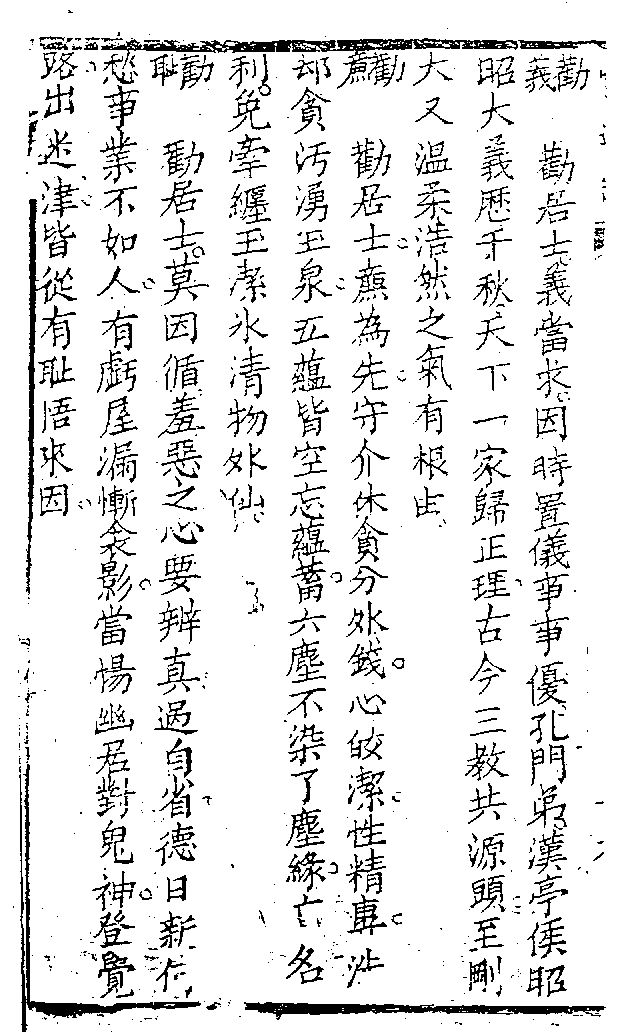 勸義 勸居士義當求因時置儀事事優孔門弟漢亭侯昭
昭大義歷千秋天下一家歸正理古今三教共源頭至剛
大又溫柔浩然之氣有根由
勸廉 勸居士廉為先守介休貪分外錢心皎潔性精專沚
却貪汚湧玉泉五蘊皆空忘蘊蓄六塵不染了塵緣亡名
利免牽纏玉潔氷清物外仙
勸耻 勸居士莫因循羞惡之心要辨真過自省德日新何
愁事業不如人有虧屋漏慚衾影當惕幽居對鬼神登覺
路出迷津皆從有耻悟來因